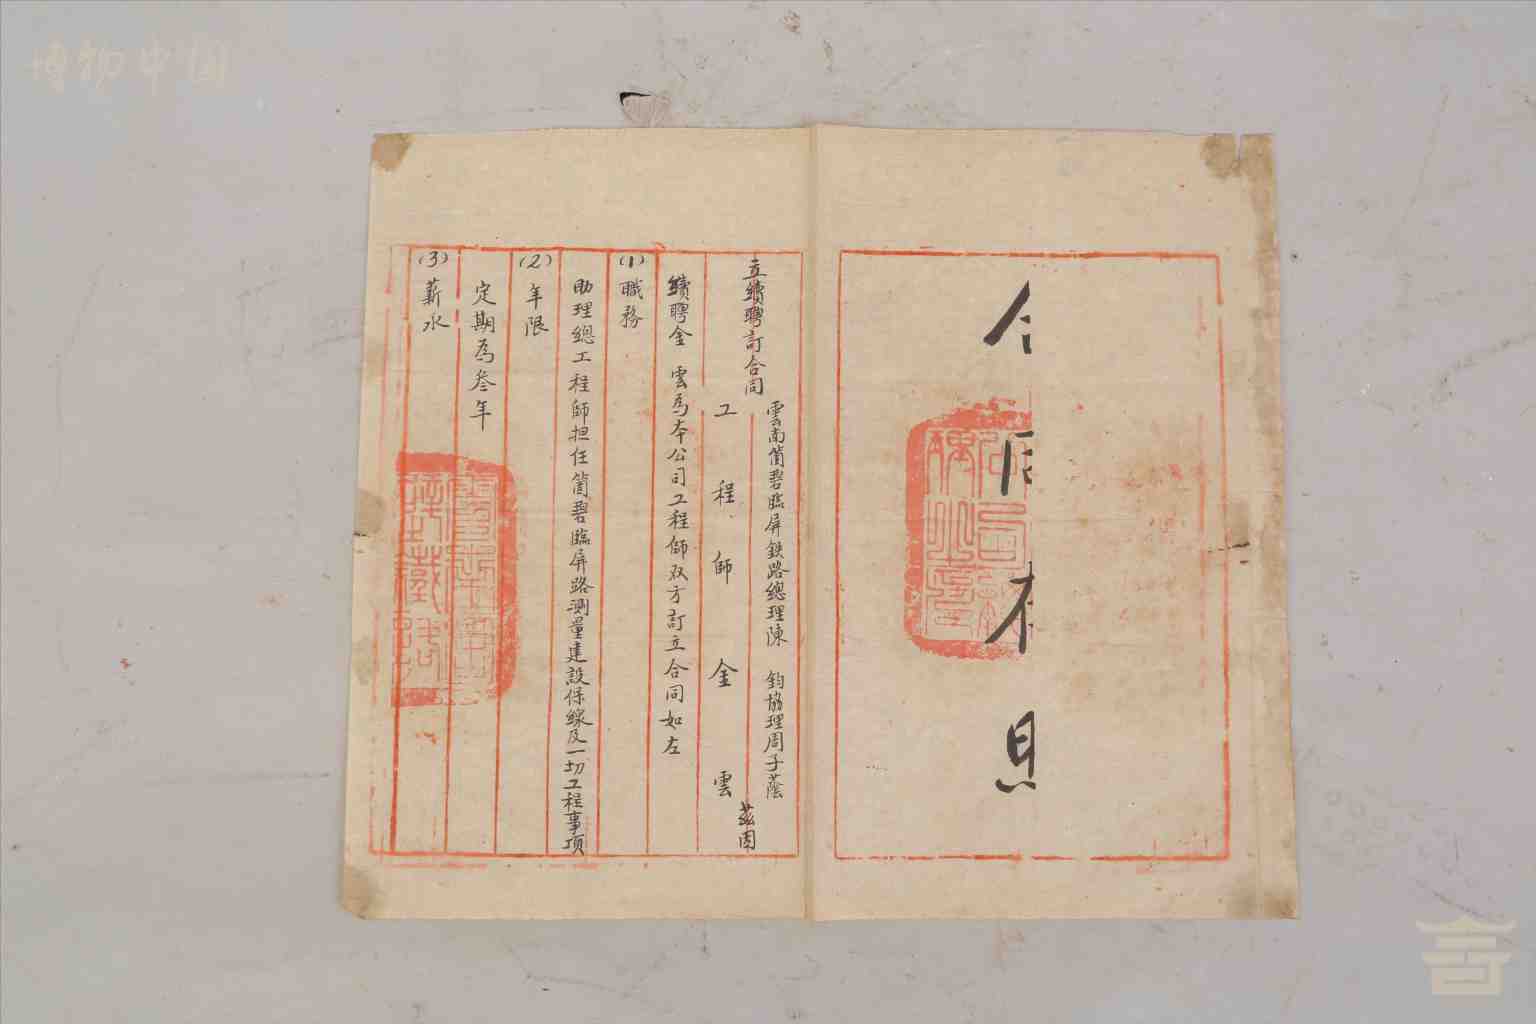 立續聘訂合同
雲南箇碧臨屏鉄路總理陳 鈞協理周子蔭
工程師金雲
茲因
續聘金 雲為本公司工程師双方訂立合同如左
(1)職務
助理總工程師担任箇碧臨屏路測量建設保線及一切工程事項
(2)年限
定期為叁年
(3)薪水
博物中国